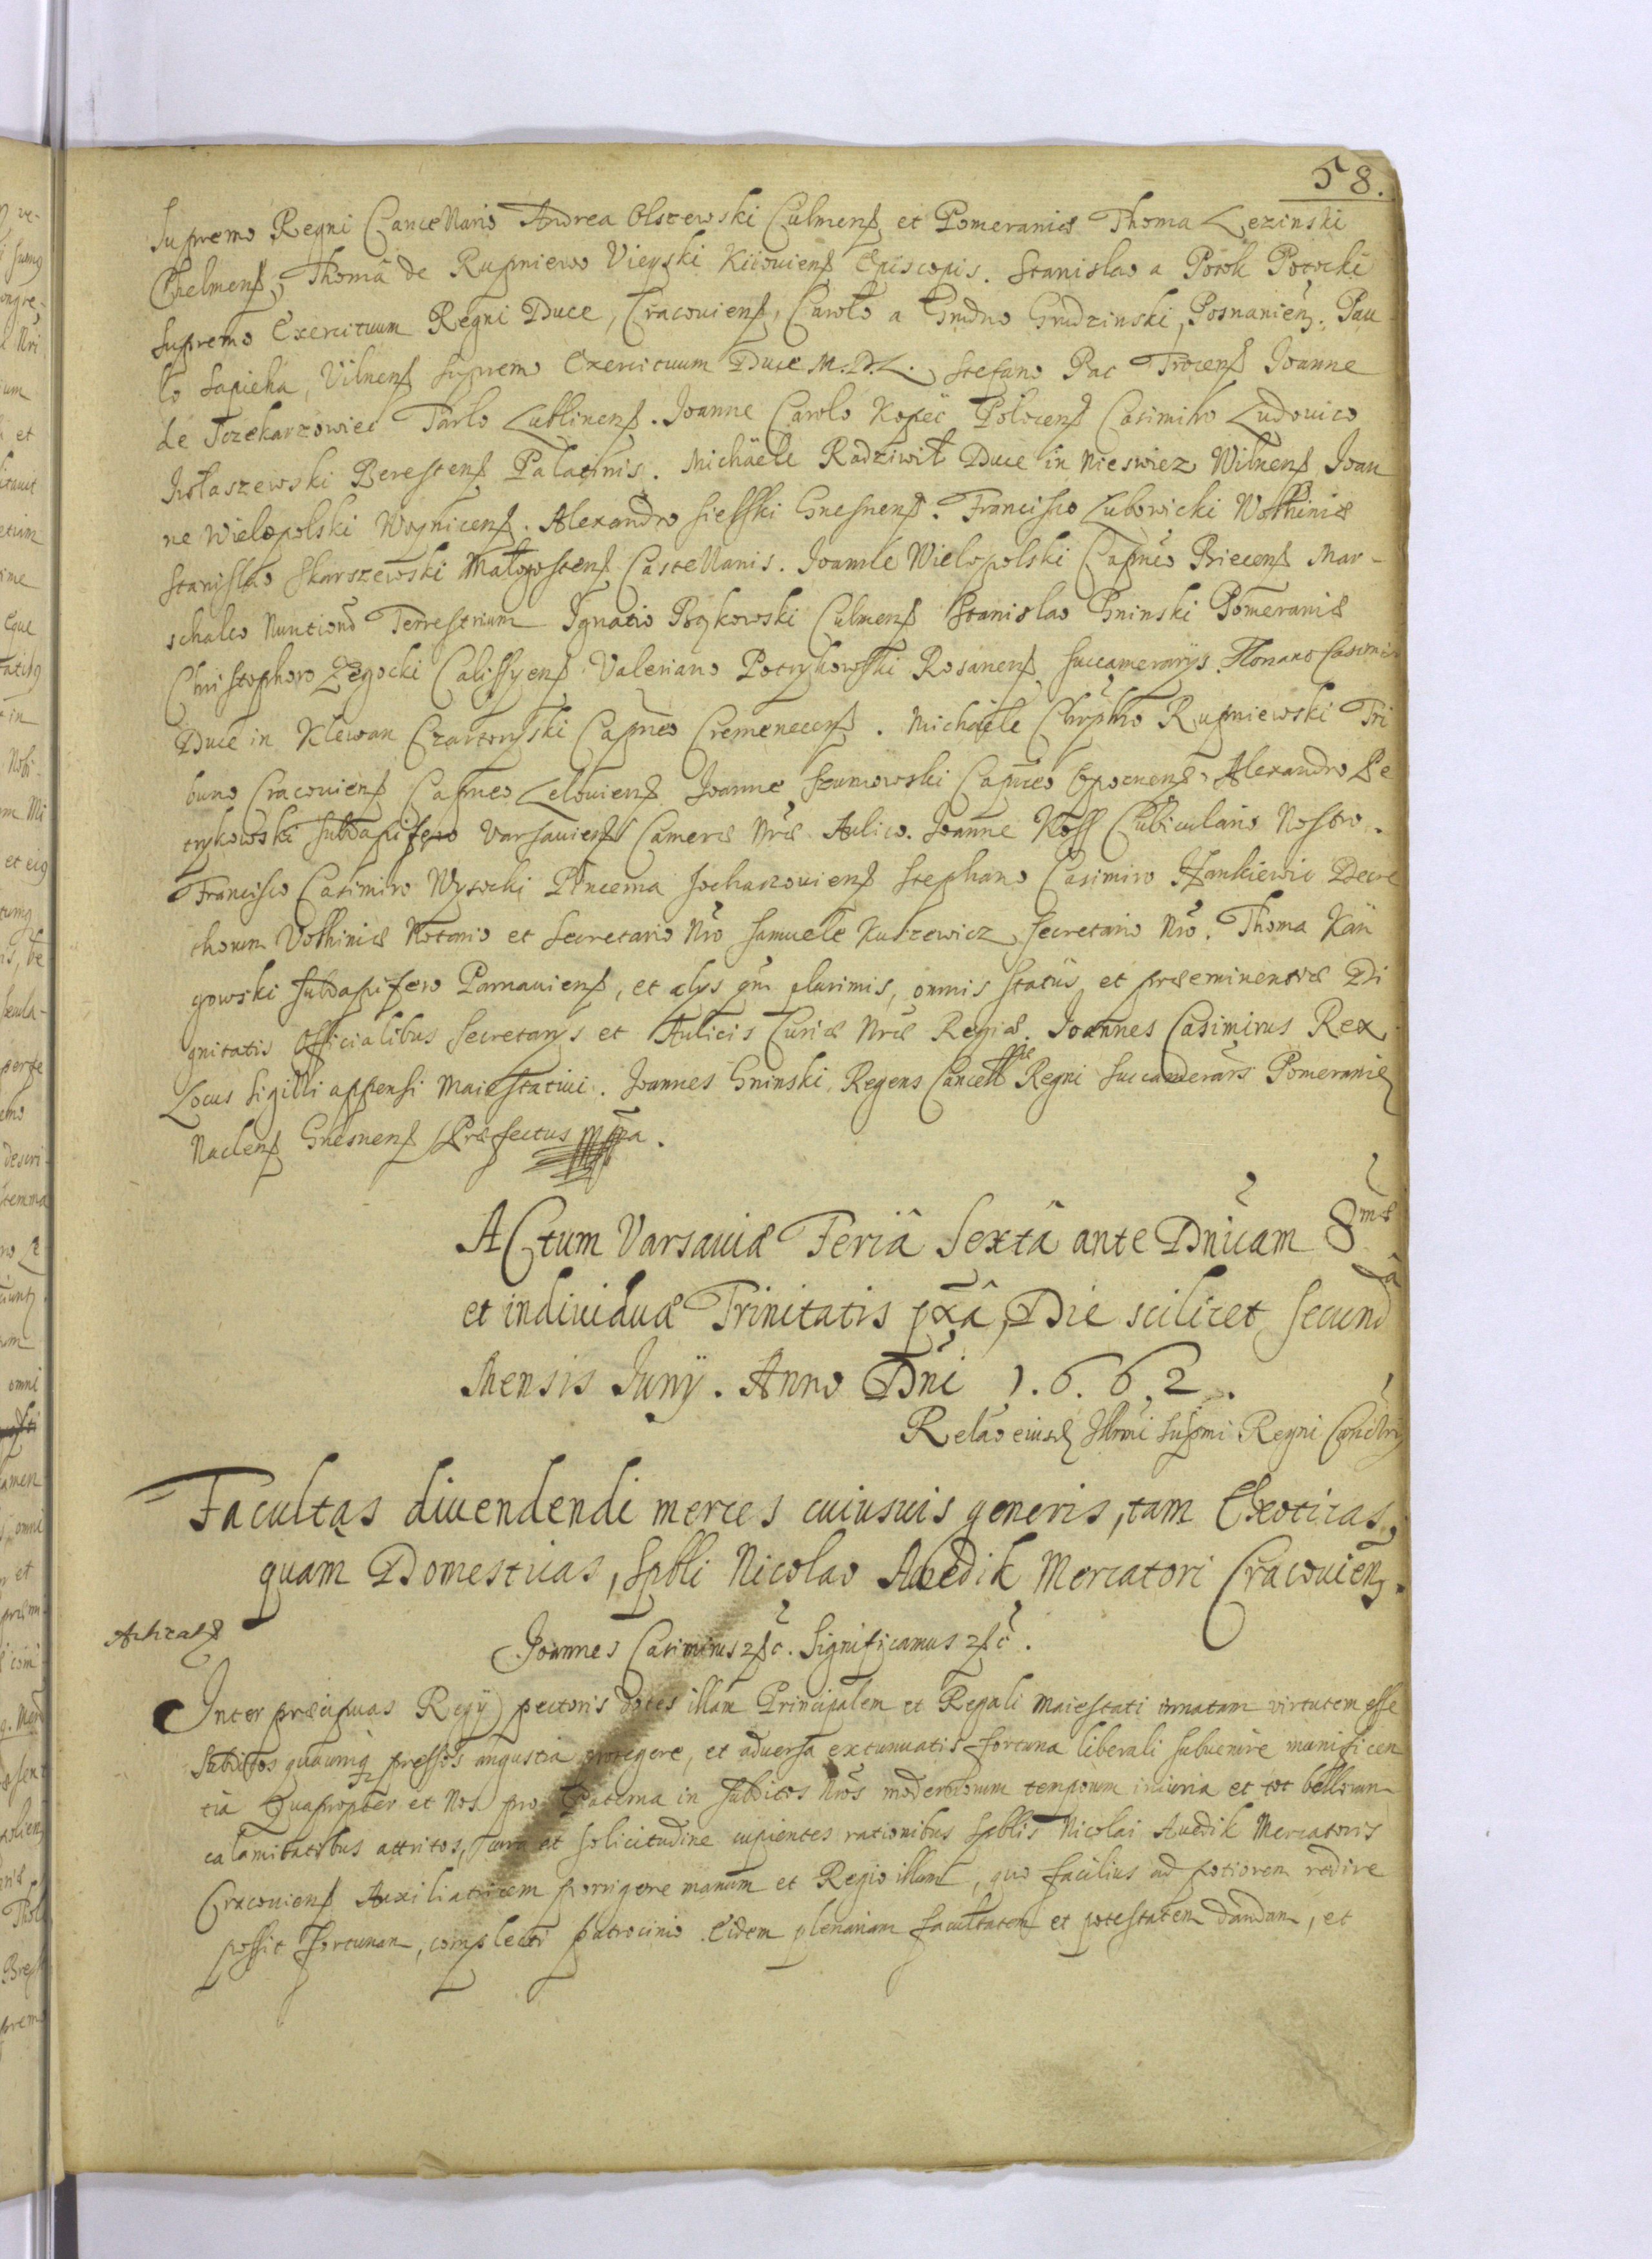 58.
Supremo Regni Cancellario Andrea Olszewski Culmens et Pomeraniæ Thoma Lezinski
Chelmens, Thomâ de Rupniewo Vieyski Kiiouiens Episcopis. Stanislao a Potok Potocki
Supremo Exercituum Regni Duce, Cracouiens, Carolo a Grudno Grudzinski, Posnanien, Pau
lo Sapieha, Vilnens Supremo Exercituum Duce M.D.L. Stefano Pac Trocens Ioanne
de Sczekarzowiec Tarlo Lublinens. Ioanne Carolo Kopec Polocens Casimiro Ludouico
Ieołaszewski Berestens Palatinis. Michäele Radziwił Duce in Nieswiez Wilnens Ioan
ne Wielopolski Woynicens. Alexandro Sielski Gnesnens. Francisco Lubowicki Wolhiniæ
Stanislao Skarszewski Małogostens Castellanis. Ioanne Wielopolski Capneo Biecens Mar-
schalco Nuntiorū Terrestrium Ignatio Bąkowski Culmens Stanislao Gninski Pomeraniæ
Christophoro Zegocki Calissyens Valeriano Petrykowski Rosanens Succamerarys. Floriano Casimir
Duce in Klewan Czartoryski Capneo Cremenecens. Michäele Chrÿphro Rupniewski Tri
buno Cracouiens Capneo Lelouiens Ioanne Szumowski Capneo Opocnens, Alexandro Pe
trykowski Subdapifero Varsauiens Cameræ Nræ Aulico. Ioanne Koss Cubiculario Nostro.
Francisco Casimiro Wysocki Pincerna Sochaczouiens Stephano Casimiro Hankiewic Decre
thorum Volhiniæ Notario et Secretario Nro Samuele Kuszewicz Secretario Nro. Thoma Kar
gowski Subdapifero Parnauiens, et alys qm plurimis, omnis status et præeminentiæ Di
gnitatis Officialibus Secretarys et Aulicis Curiæ Nræ Regiæ. Joannes Casimirus Rex
Locus Sigilli appensi Maiestatiui. Joannes Gninski Regens Cancellriæ Regni Succamerars Pomeraniæ
Naclens Gnesnens Præfectus mpa.
Actum Varsauiæ Feriâ Sextâ ante Dnicam Smæ
et indiuiduæ Trinitatis pxâ, Die scilicet secundâ
Mensis Iunÿ. Anno Dni 1.6.6.2.
Relao eiusd Illrmi Supmi Regni Cancellrij
Facultas diuendendi merces cuiusuis generis, tam Exoticas,
quam Domesticas, Spbli Nicolao Auedik Mercatori Cracouien.
Joannes Casimirus etc. Significamus etc.
Inter præcipuas Regÿ pectoris dotes illam Principalem et Regali Maiestati innatam virtutem esse
Subditos quacunq pressos angustia protegere, et aduersa extenuatis fortuna liberali subuenire munificen
tia Quapropter et Nos pro Paterna in Subditos Nros modernorum temporum iniuria et tot bellorum
calamitatibus attritos, cura et solicitudine cupientes rationibus Spblis Nicolai Auedik Mercatoris
Cracouiens Auxiliatricem porrigere manum et Regio illum, quo facilius ad potiorem redire
possit fortunam, complecti patrocinio. Eidem plenariam facultatem et potestatem dandam, et